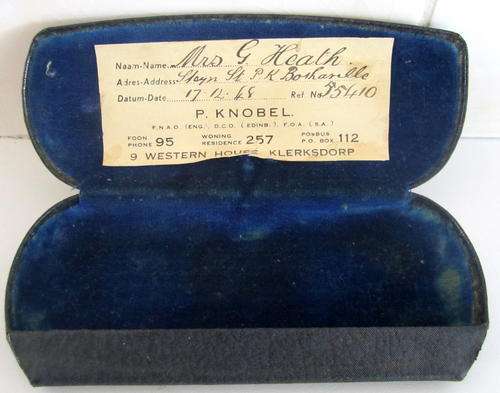 Naam-Name Mrs G. Heath.
Adres-Address Steyn St. P.K Bothaville
Datum-Date 17.12.48 Ref No. 35410
P. KNOBEL.
F.N.A.O. (ENG.), D.C.O. (EDINB.), F.O.A. (S.A.)
FOON PHONE 95 WONING RESIDENCE 257 POSBUS P.O. BOX 112
9 WESTERN HOUSE KLERKSDORP